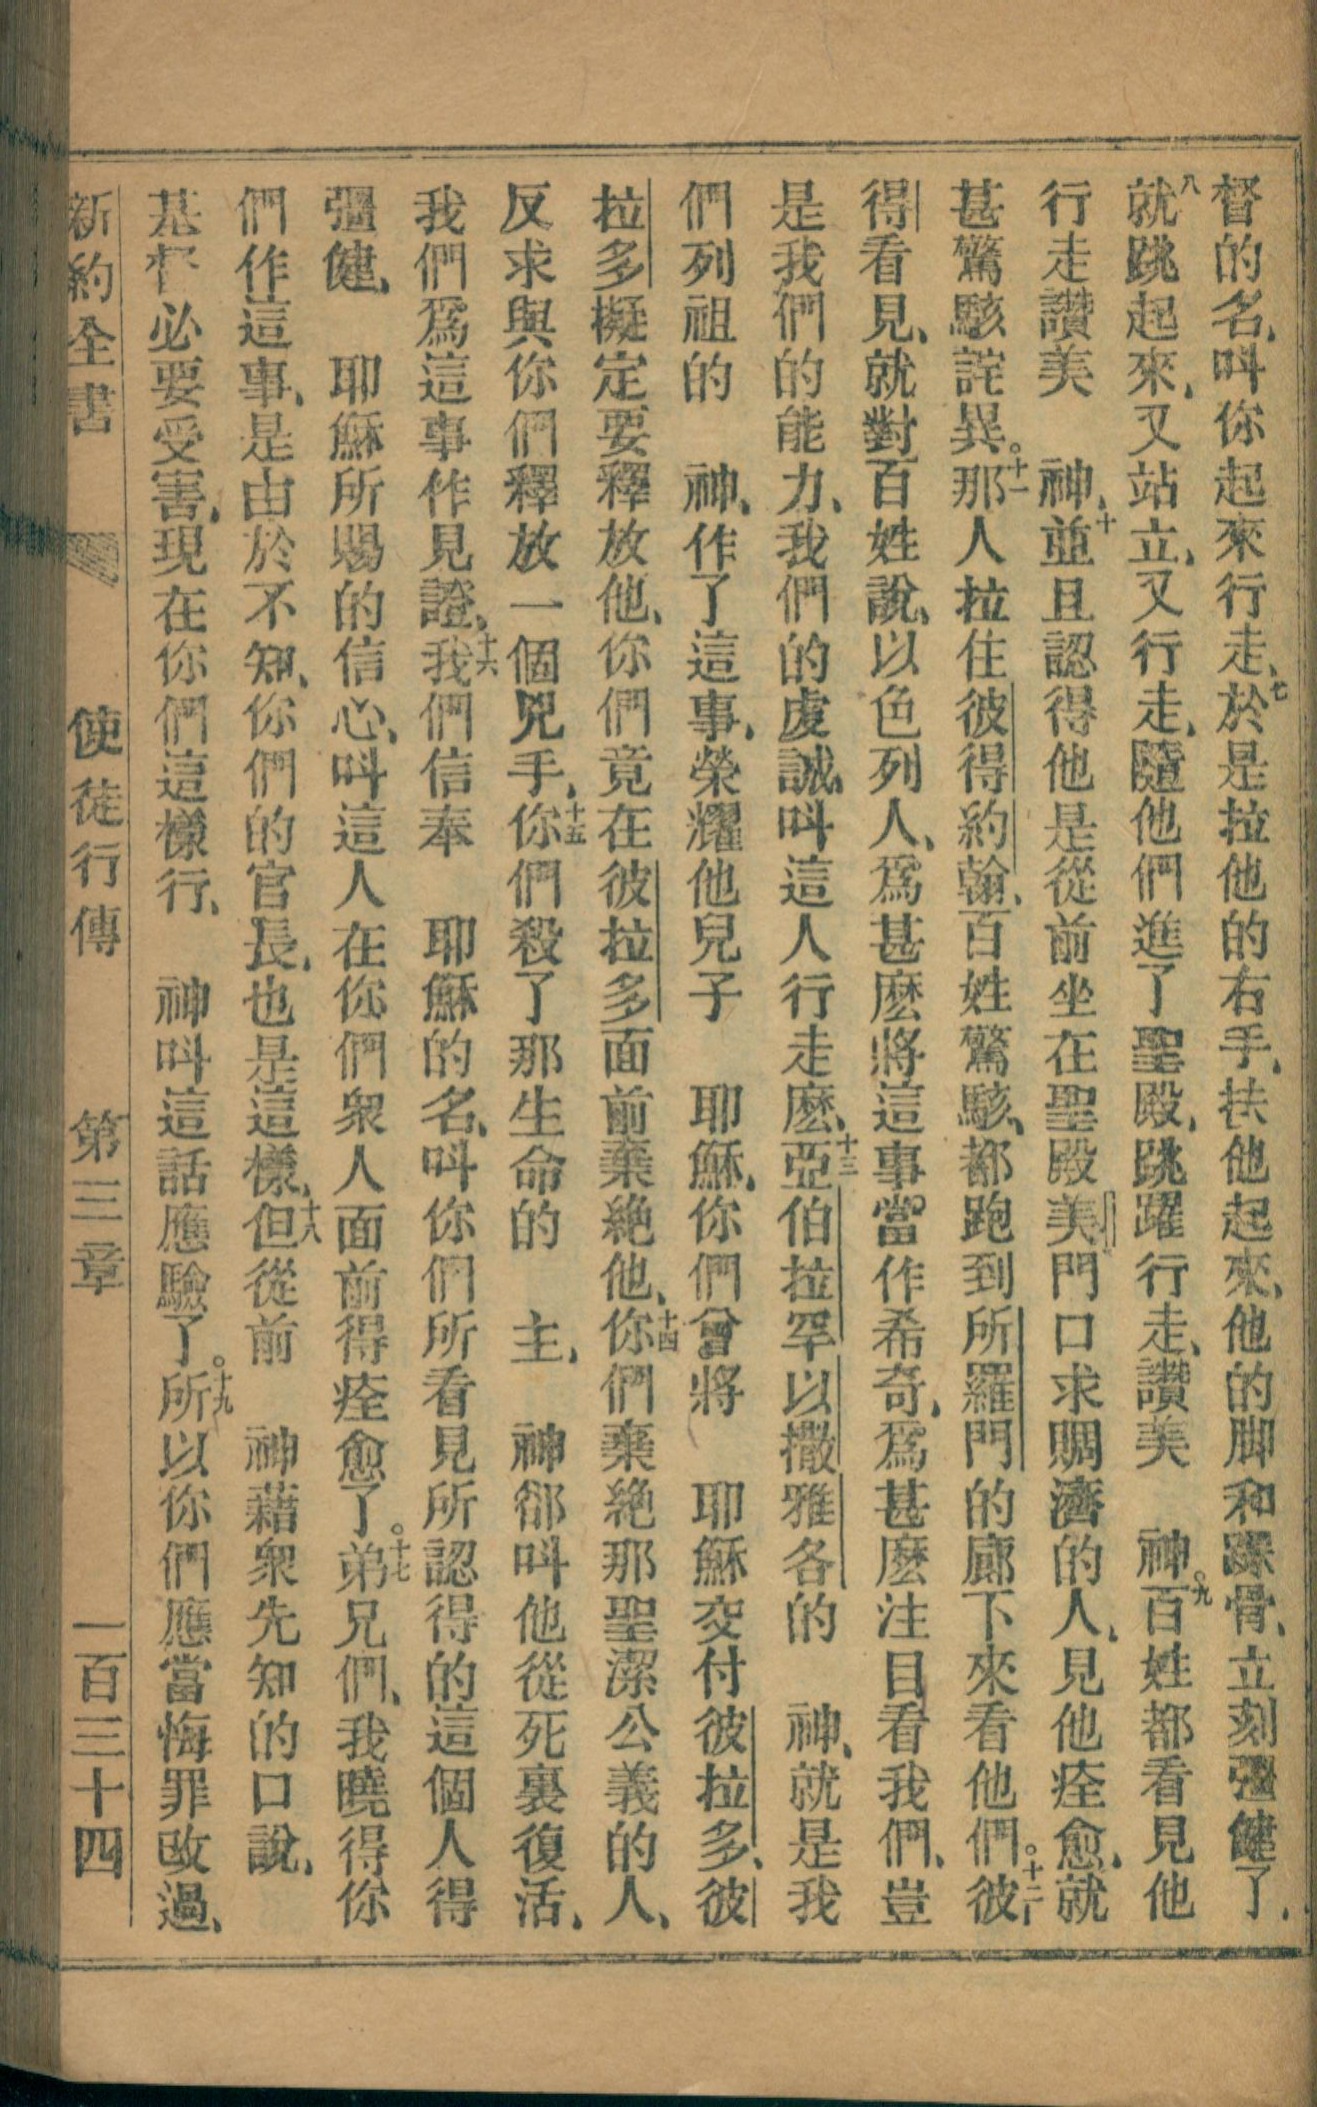 督的名、叫你起來行走、七於是拉他的右手、扶他起來、他的脚和踝骨、立刻强健了、
八就跳起來、又站立、又行走、隨他們進了聖殿、跳躍行走、讚美　神。九百姓都看見他
行走讚美　神、十並且認得他是從前坐在聖殿美門口求賙濟的人、見他痊愈、就
甚驚駭詫異。十一那人拉住彼得約翰、百姓驚駭、都跑到所羅門的廊下來看他們。十二彼
得看見、就對百姓說、以色列人、爲甚麽將這事當作希奇、爲甚麽注目看我們、豈
是我們的能力、我們的虔誠、叫這人行走麽、十三亞伯拉罕以撒雅各的　神、就是我
們列祖的　神、作了這事、榮耀他兒子　耶穌、你們曾將　耶穌交付彼拉多、彼
拉多擬定要釋放他、你們竟在彼拉多面前棄絶他、十四你們棄絶那聖潔公義的人、
反求與你們釋放一個兇手、十五你們殺了那生命的　主、　神郤叫他從死裏復活、
我們爲這事作見證、十六我們信奉　耶穌的名、叫你們所看見所認得的這個人得
彊健、　耶穌所賜的信心、叫這人在你們衆人面前得痊愈了。十七弟兄們、我曉得你
們作這事、是由於不知、你們的官長、也是這樣、十八但從前　神藉衆先知的口說、
基督必要受害、現在你們這樣行、　神叫這話應驗了。十九所以你們應當悔罪改過、
新約全書　使徒行傳　第三章　一百三十四